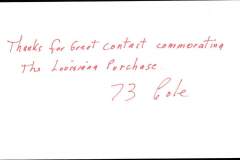 Thanks for Great contact commorating
The Louisiana Purchase
73 Cole